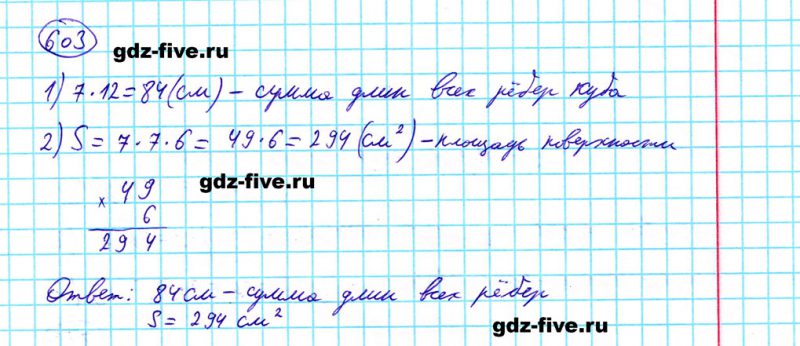 603
gdz-five.ru
1) 7·12=84(см) – сумма длин всех рёбер куба
2) S = 7·7·6 = 49·6 = 294 (см²) – площадь поверхности
gdz-five.ru
× 49
6
294
Ответ: 84 см – сумма длин всех рёбер
S = 294 см²
gdz-five.ru